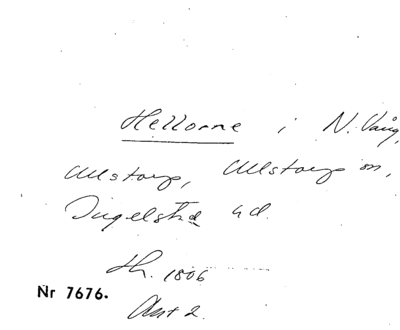 Hellorne i N. Vång,
Ullstorp, Ullstorps sn,
Ingelstad hd.
Lh. 1806
Nr 7676.
Akt 2.